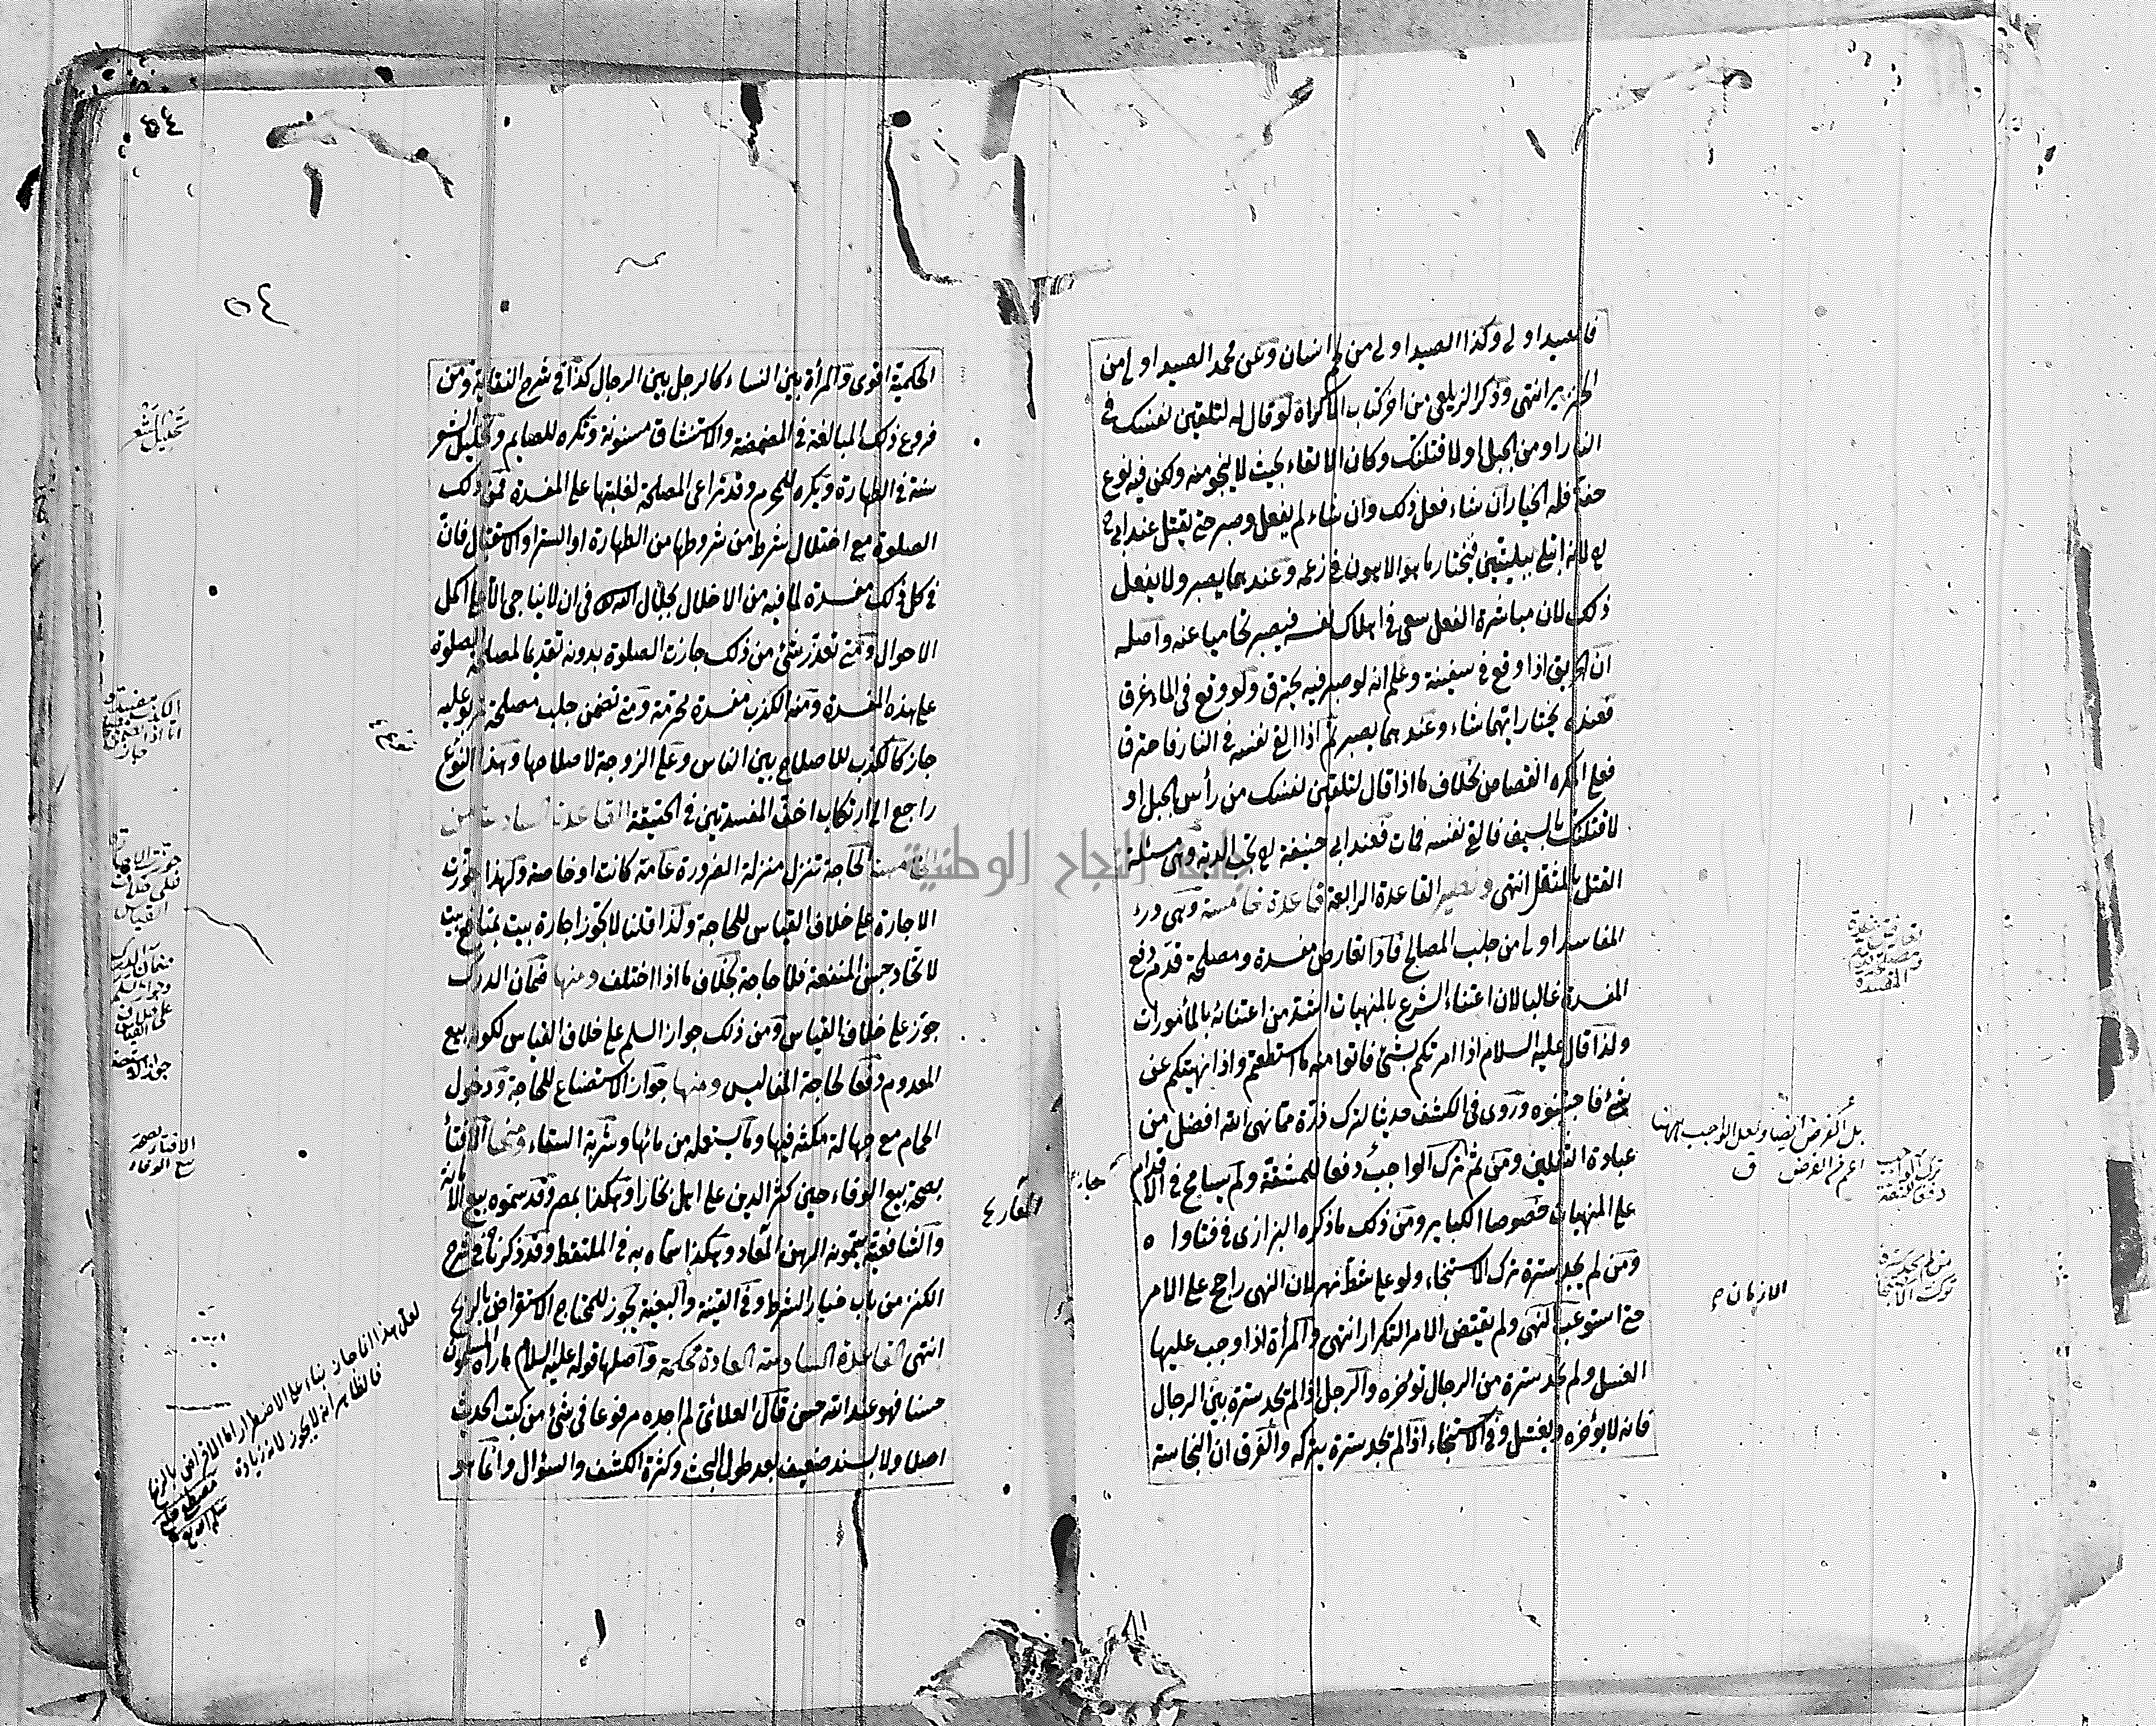 فالصيد اولى وكذا الصيد اولى من لحم انسان وعن محمد الصيد اولى من
الخنزير انتهى وذكر الزيلعي من اخر كتاب الاكراه لو قال له لتلقين نفسك في
النار او من الجبل او لاقتلنك وكان الالقاء بحيث لا ينجو منه ولكن فيه نوع
خفة فله الخيار ان شاء فعل ذلك وان شاء لم يفعل وصبر حتى يقتل عند ابي ح
لانه ابتلي ببليتين فيختار ما هو الاهون في زعمه وعندهما يصبر ولا يفعل
ذلك لان مباشرة الفعل سعي في اهلاك نفسه فيصبر تحاميا عنه واصله
ان الحريق اذا وقع في سفينة وعلم انه لو صبر فيه يحترق ولو وقع في الماء غرق
فعنده يختار ايهما شاء وعندهما يصبر ثم اذا القى نفسه في النار فاحترق
فعلى المكره القصاص بخلاف ما اذا قال لتلقين نفسك من رأس الجبل او
لاقتلنك بالسيف فالقى نفسه فمات فعند ابي حنيفة تجب الدية وهي مسئلة
القتل بالمثقل انتهى ونظير القاعدة الرابعة قاعدة خامسة وهي درء
المفاسد اولى من جلب المصالح فاذا تعارض مفسدة ومصلحة قدم دفع
المفسدة غالبا لان اعتناء الشرع بالمنهيات اشد من اعتنائه بالمأمورات
ولذا قال عليه السلام اذا امرتكم بشئ فاتوا منه ما استطعتم واذا نهيتكم عن
شئ فاجتنبوه وروى في الكشف حديثا لترك ذرة مما نهى الله افضل من
عبادة الثقلين ومن ثم ترك الواجب دفعا للمشقة ولم يسامح في الاقدام
على المنهيات خصوصا الكبائر ومن ذلك ما ذكره البزازي في فتاواه
ومن لم يجد سترة ترك الاستنجاء ولو على شط نهر لان النهي راجح على الامر
حتى استوعب النهي ولم يقتض الامر التكرار انتهى والمرأة اذا وجب عليها
الغسل ولم تجد سترة من الرجال تؤخره والرجل اذا لم تجد سترة بين الرجال
فانه لا يؤخره ويغتسل وفي الاستنجاء اذا لم تجد سترة يتركه والفرق ان النجاسة
تعارض مفسدة
بل الفرض ايضا ولعل الواجب ههنا
اعم من الفرض ق
ترك الواجب
دفعا للمشقة
من لم يجد سترة
ترك الاستنجاء
الازمان ح
جامعة النجاح الوطنية
٥٤
٥٤
الحكمية اقوى والمرأة بين النساء كالرجل بين الرجال كذا في شرح النقاية ومن
فروع ذلك المبالغة في المضمضة والاستنشاق مسنونة وتكره للصايم وتخليل الشعر
سنة في الطهارة ويكره للمحرم وقد تراعى المصلحة لغلبتها على المفسدة فمن ذلك
الصلوة مع اختلال شرط من شروطها من الطهارة او الستر او الاستقبال فان
في كل ذلك مفسدة لما فيه من الاخلال بجلال الله في ان لا يناجى الا على اكمل
الاحوال ومتى تعذر شئ من ذلك جازت الصلوة بدونه تقديما لمصلحة الصلوة
على هذه المفسدة ومنه الكذب مفسدة محرمة ومتى تضمن جلب مصلحة تربو عليه
جاز كالكذب للاصلاح بين الناس وعلى الزوجة لاصلاحها وهذا النوع
راجع الى ارتكاب اخف المفسدتين في الحقيقة القاعدة السادسة من
الخامسة الحاجة تنزل منزلة الضرورة عامة كانت او خاصة ولهذا جوزت
الاجارة على خلاف القياس للحاجة ولذا قلنا لا تجوز اجارة بيت بمنافع بيت
لاتحاد جنس المنفعة فلا حاجة بخلاف ما اذا اختلف ومنها ضمان الدرك
جوز على خلاف القياس ومن ذلك جواز السلم على خلاف القياس لكونه بيع
المعدوم دفعا لحاجة المفاليس ومنها جواز الاستصناع للحاجة ودخول
الحمام مع جهالة مكثه فيها وما يستعمله من مائها وشربة السقاء ومنها الافتاء
بصحة بيع الوفاء حين كثر الدين على اهل بخارا وهكذا بمصر وقد سموه بيع الامانة
والشافعية يسمونه الرهن المعاد وهكذا سماه به في الملتقط وقد ذكرناه في شرح
الكنز من باب خيار الشرط وفي القنية والبغية يجوز للمحتاج الاستقراض بالربح
انتهى القاعدة السادسة العادة محكمة واصلها قوله عليه السلام ما راه المسلمون
حسنا فهو عند الله حسن قال العلائي لم اجده مرفوعا في شئ من كتب الحديث
اصلا ولا بسند ضعيف بعد طول البحث وكثرة الكشف والسؤال وانما هو
تخليل الشعر
الكذب مفسدة
جائز
القياس
ضمان الدرك
وجواز السلم
على خلاف
القياس
جواز الاستصناع
الافتاء بصحة
بيع الوفاء
لعل هذا الناجاز بناء على الاضطرار اما الاقراض بالربا
فالظاهر انه لا يجوز لانه زيادة